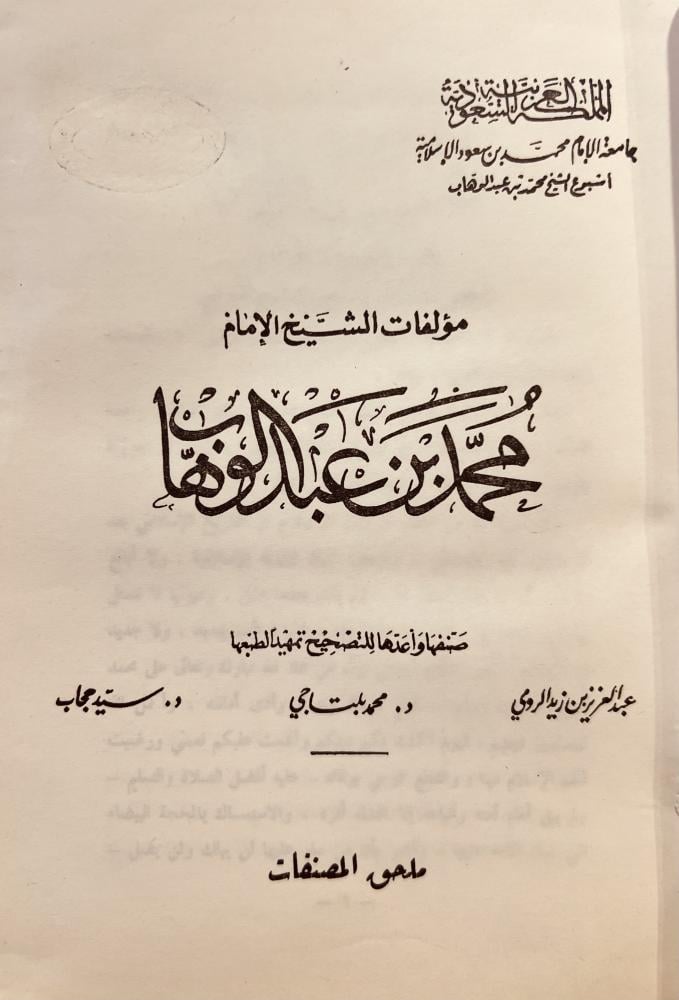 المملكة العربية السعودية
جامعة الإمام محمد بن سعود الإسلامية
أسبوع الشيخ محمد بن عبد الوهاب
مؤلفات الشيخ الإمام
محمد بن عبد الوهاب
صنفها وأعدها للتصحيح تمهيداً لطبعها
عبد العزيز بن زيد الرومي د. محمد بلتاجي د. سيد حجاب
ملحق المصنفات